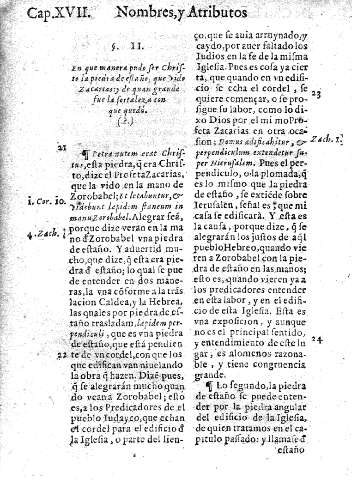 Cap.XVII. Nombres, y Atributos
§. II.
En que manera pudo ser Chris-
to la piedra de estaño, que vido
Zacarias: y de quan grande
fue la fortaleza con
que quedó.
(?.)
21
¶ Petra autem erat Chris-
tus, esta piedra, q̃ era Chris-
to, dize el Profeta Zacarias,
que la vido en la mano de
Zorobabel; & letabuntur, &
i. Cor. 10.
videbunt lapidem stanneum in
manu Zorobabel. Alegrarseã,
4. Zach.
porque dize verán en la ma-
no d̃ Zorobabel vna piedra
de estaño. Y aduertid mu-
cho, que dize, q̃ esta era pied̃ra
d̃ estaño; lo qual se pue
de entender en dos mane-
ras, la vna cõforme a la tras
lacion Caldea, y la Hebrea,
las quales por piedra de es-
taño trasladam, lapidem per-
pendiculi, que es vna piedra
de estaño, que está pendien
22
te de vn cordel, con que los
que edifican van niuelando
la obra q̃ hazen. Dizẽ pues,
q̃ se alegrarán mucho quan
do vean a Zorobabel; esto
es, a los Predicadores de el
pueblo Iudayco, que echan
el cordel para el edificio d̃
la Iglesia, o parte del lien-
ço, que se auia arruynado, y
caydo, por auer faltado los
Iudios en la fe de la misma
Iglesia. Pues es cosa ya cier
ta, que quando en vn edifi-
cio se echa el cordel, se
23
quiere començar, o se pro-
sigue su labor, como lo di-
xo Dios por el mismo Pro-
feta Zacarias en otra oca
sion; Domus ædificabitur, &
Zach. 1.
perpendiculum extendetur su-
per Hierusalem. Pues el per-
pendiculo, o la plomada, q̃
es lo mismo que la piedra
de estaño, se extiẽde sobre
Ierusalen, señal es que mi
casa se edificará. Y esta es
la causa, porque dize, q̃ se
alegrarán los justos de aq̃l
pueblo Hebreo, quando vie
ren a Zorobabel con la pie-
dra de estaño en las manos;
esto es, quando vieren ya a
los predicadores entender
en esta labor, y en el edifi-
cio de esta Iglesia. Esta es
vna exposicion, y aunque
no es el principal sentido,
24
y entendimiento de este lu
gar; es alomenos razona-
ble, y tiene congruencia
grande.
¶ Lo segundo, la piedra
de estaño se puede enten-
der por la piedra angular
del edificio de la Iglesia,
de quien tratamos en el ca-
pitulo passado: y llamase d̃
estaño